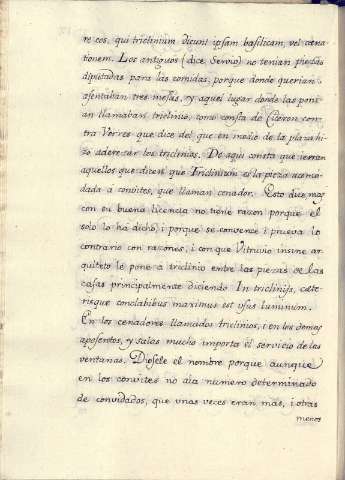 re eos, qui triclinium dicunt ipsam basilicam, vel cæna
tionem. Los antiguos (dice Servio) no tenian piezas
diputadas para las comidas, porque donde querian
asentaban tres mesas, y aquel lugar donde las poni
an llamaban triclinio, como consta de Ciceron con
tra Verres que dice del que en medio de la plaza hi
zo aderezar los triclinios. De aqui consta que ierran
aquellos que dicen que Triclinium es la pieza acomo
dada a convites, que llaman cenador. Esto dice, mas
con su buena licencia no tiene razon porque el
solo lo ha dicho, i porque se convence i prueva lo
contrario con razones, i con que Vitruvio insine ar
quiteto le pone a triclinio entre las piezas de las
casas principalmente diciendo In triclinijs, cæte
risque conclabibus maximus est usus luminum.
En los cenadores llamados triclinios, i en los demas
aposentos, y salas mucho importa el servicio de las
ventanas. Diosele el nombre porque aunque
en los convites no dia numero determinado
de convidados, que unas veces eran mas, i otras
menos